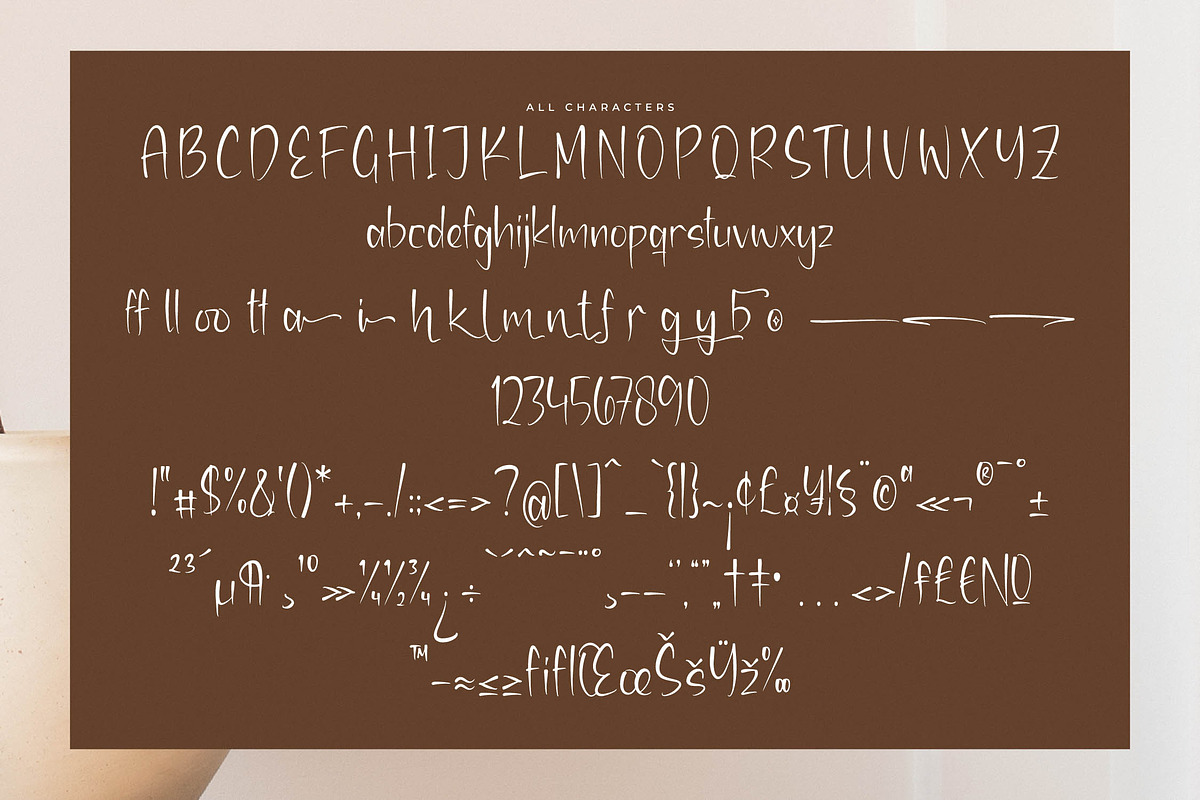 ALL CHARACTERS
ABCDEFGHIJKLMNOPQRSTUVWXYZ
abcdefghijklmnopqrstuvwxyz
ff ll oo tt a i h k l m n t f r g y 5
1234567890
!"#$%&'()*+,-./:;<=>?@[\]^_`{|}~¡¢£¤¥¦§¨©ª«¬®¯°±
²³´µ¶·¸¹º»¼½¾¿÷ˋˇˆ˜¯¨°‚–—‘’‚“”„†‡•…‹›⁄₣₤€№
™−≈≤≥fiflŒœŠšŸž‰